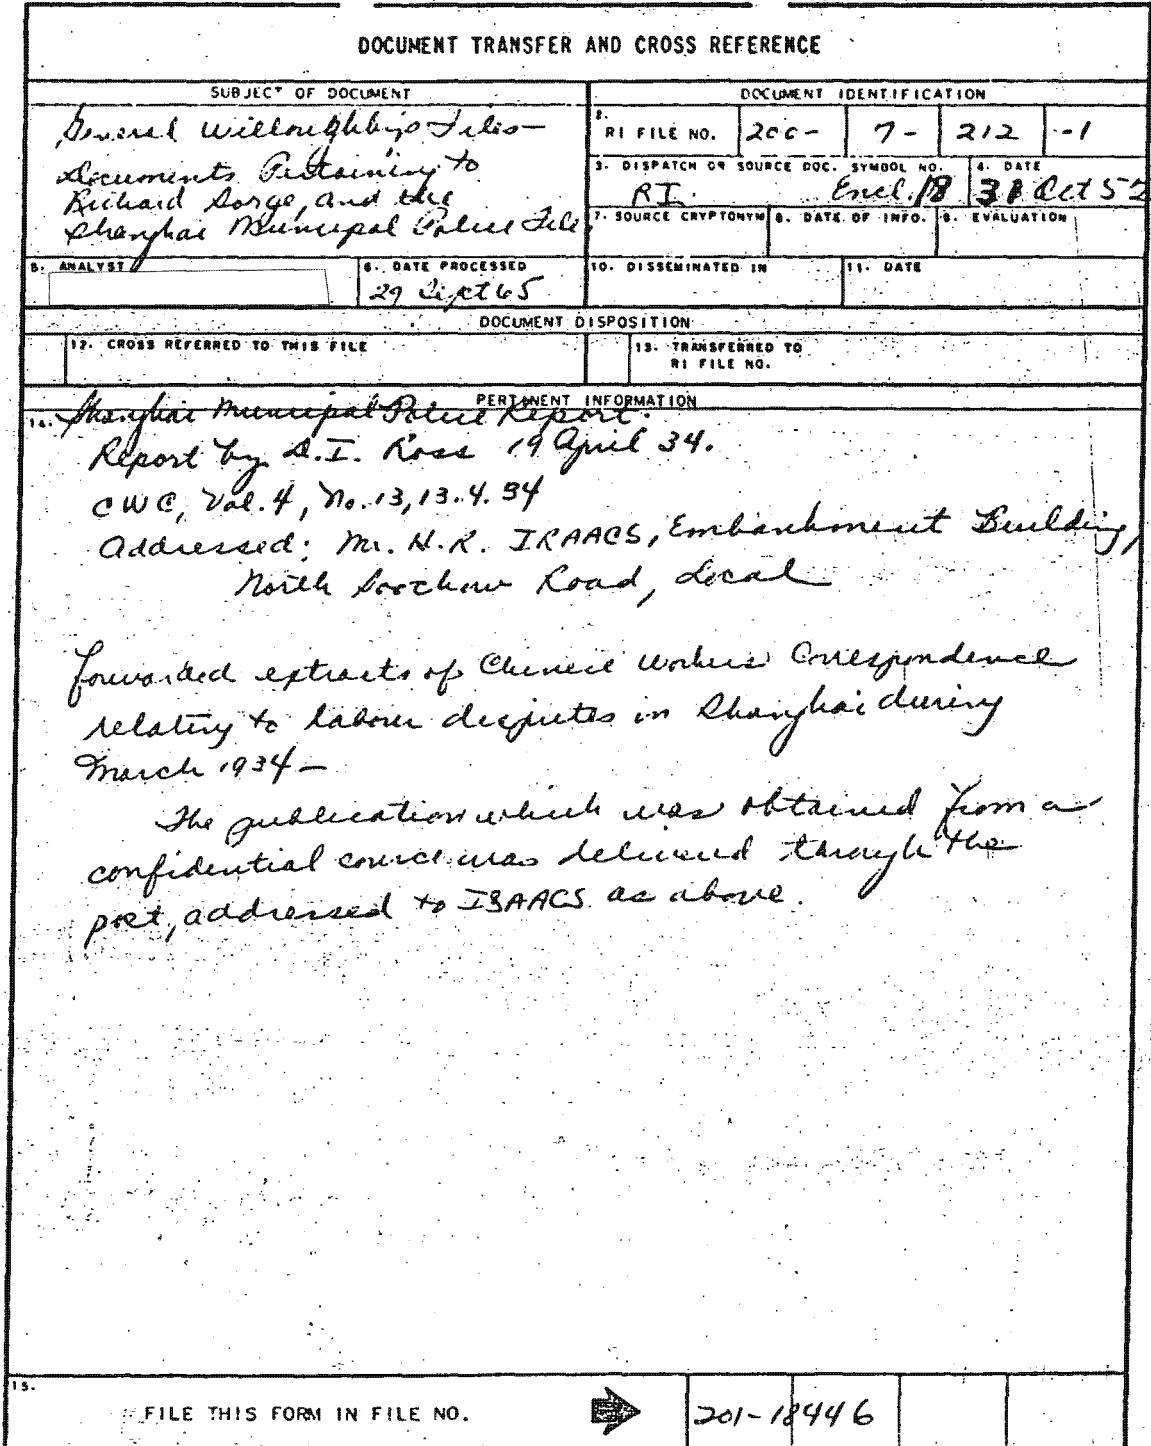 DOCUMENT TRANSFER AND CROSS REFERENCE
SUBJECT OF DOCUMENT
General Willoughby's Files—
Documents Pertaining to
Richard Sorge, and the
Shanghai Municipal Police File
DOCUMENT IDENTIFICATION
2. RI FILE NO. 200- 7- 212 -1
3. DISPATCH OR SOURCE DOC. SYMBOL NO. 4. DATE
RI. Encl. 18 31 Oct 52
7. SOURCE CRYPTONYM 8. DATE OF INFO. 9. EVALUATION
5. ANALYST 6. DATE PROCESSED 10. DISSEMINATED IN 11. DATE
29 Sept 65
DOCUMENT DISPOSITION
12. CROSS REFERRED TO THIS FILE 13. TRANSFERRED TO
RI FILE NO.
PERTINENT INFORMATION
14. Shanghai Municipal Police Report.
Report by D.I. Ross 19 April 34.
CWC, Vol. 4, No. 13, 13.4.34
Addressed: Mr. H.R. ISAACS, Embankment Building,
North Soochow Road, Local
forwarded extracts of Chinese Workers Correspondence
relating to labour disputes in Shanghai during
March 1934—
The publication which was obtained from a
confidential source was delivered through the
post, addressed to ISAACS as above.
15.
FILE THIS FORM IN FILE NO. 201-18446